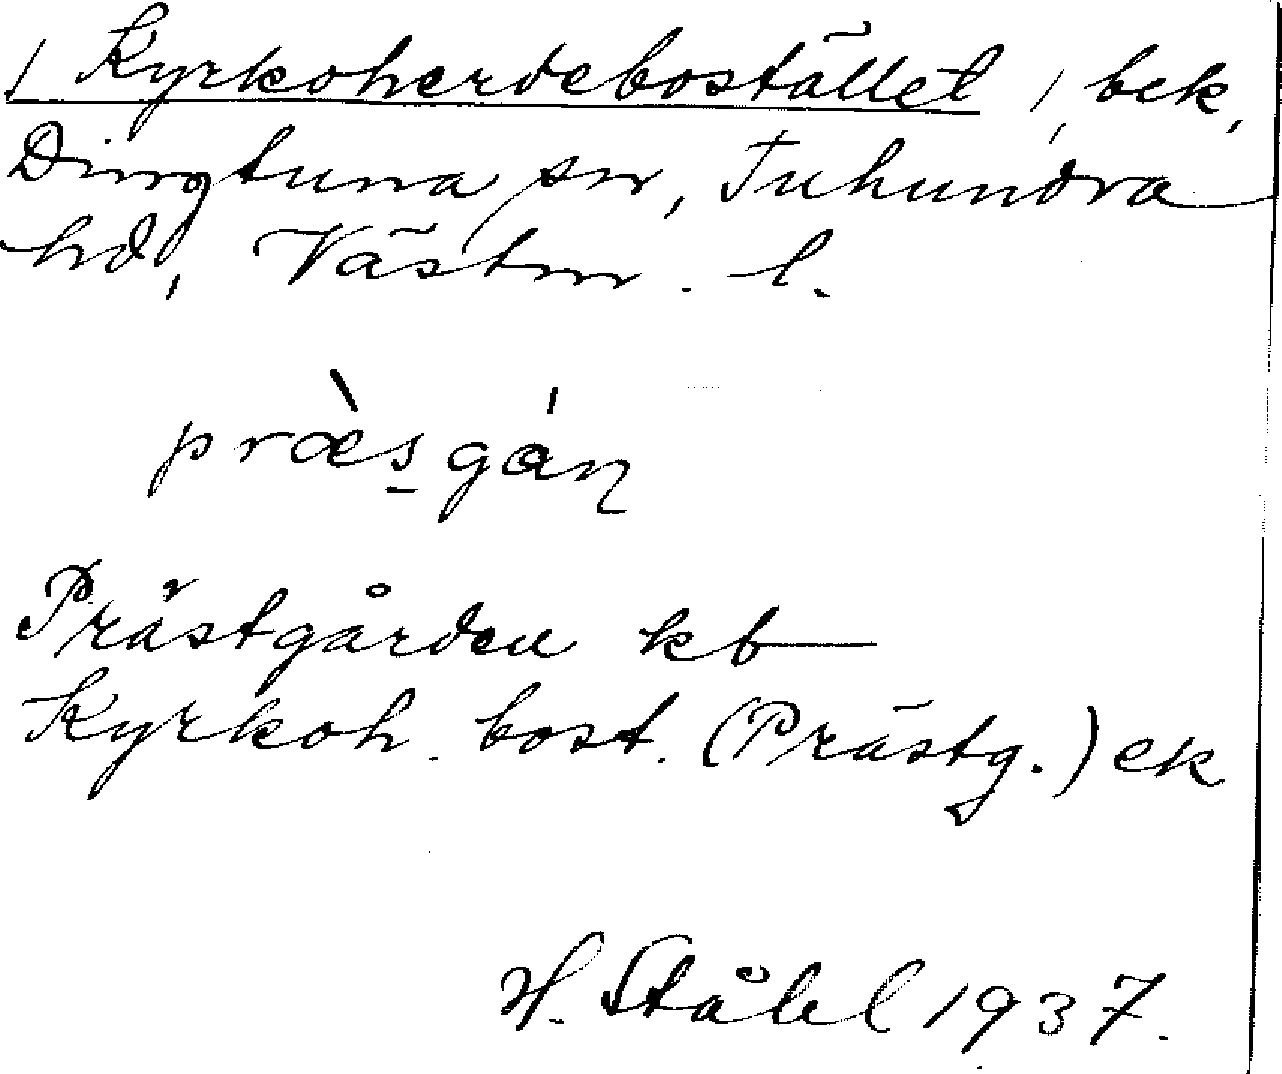 / Kyrkoherdebostället /, bek,
Dingtuna sn, Tuhundra
hd, Västm. l.
præ̀s̲gán̢
Prästgården kb
Kyrkoh. bost. (Prästg.) ek
H. Ståhl 1937.